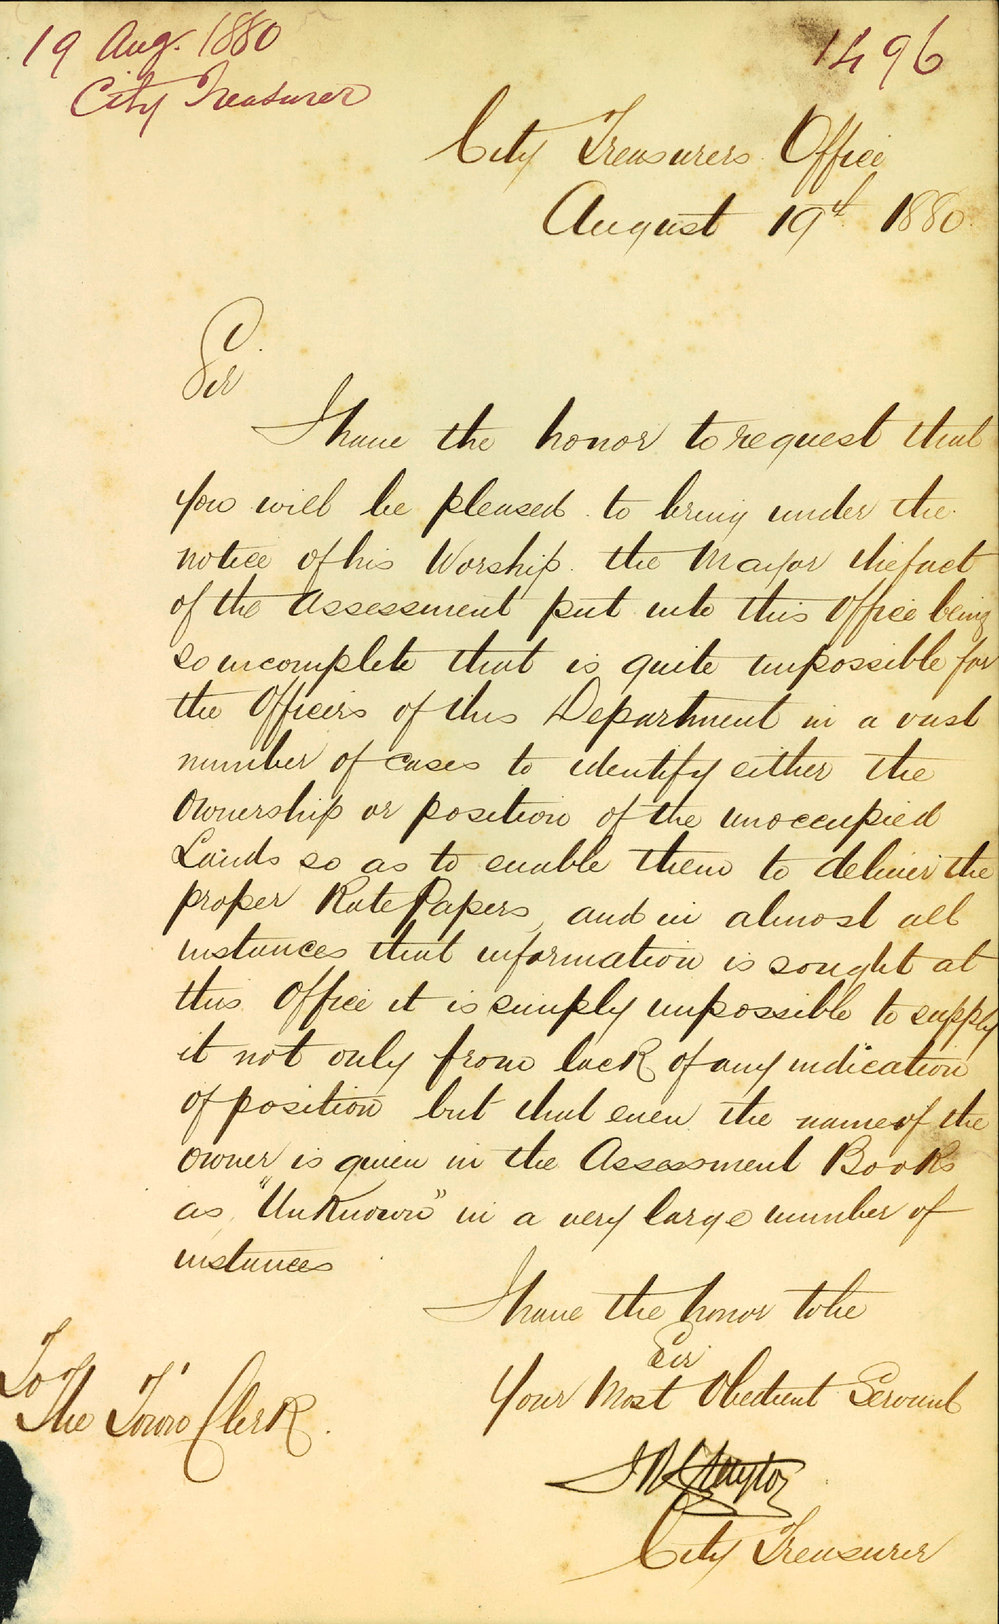 19 Aug. 1880
City Treasurer
1496
City Treasurers Office
August 19th 1880.
Sir
I have the honor to request that
you will be pleased to bring under the
notice of his Worship the Mayor the fact
of the Assessment put into this Office being
so incomplete that is quite impossible for
the Officers of this Department in a vast
number of cases to identify either the
Ownership or position of the unoccupied
Lands so as to enable them to deliver the
proper Rate Papers, and in almost all
instances that information is sought at
this Office it is simply impossible to supply
it not only from lack of any indication
of position but that even the name of the
owner is given in the Assessment Books
as "UnKnown" in a very large number of
instances
I have the honor to be
Sir
Your Most Obedient Servant
City Treasurer
To
The Town Clerk.